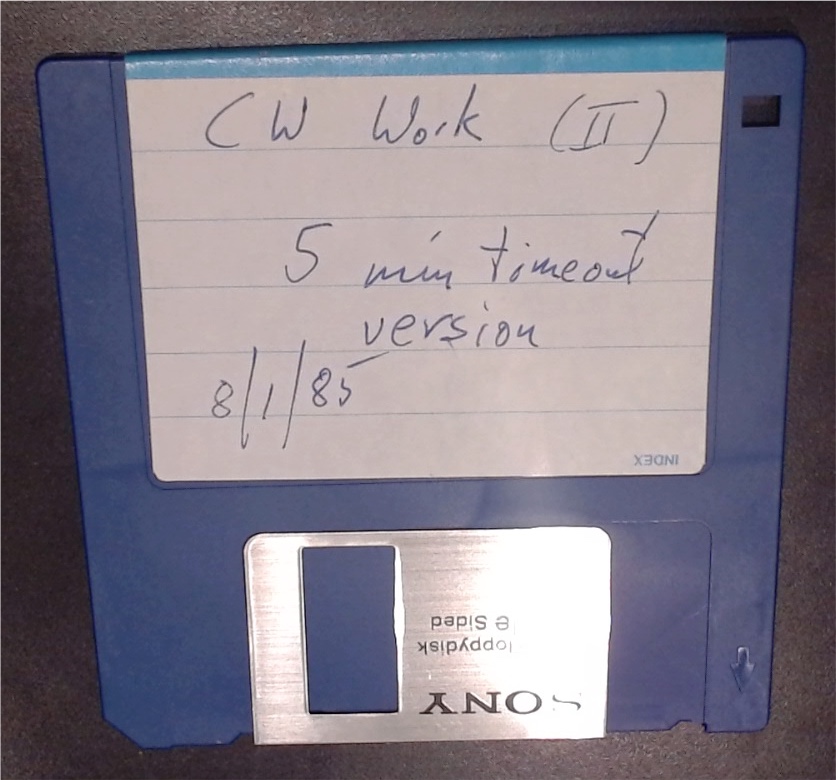 CW Work (II)
5 min timeout
version
8/1/85
INDEX
e Sided
loppydisk
SONY